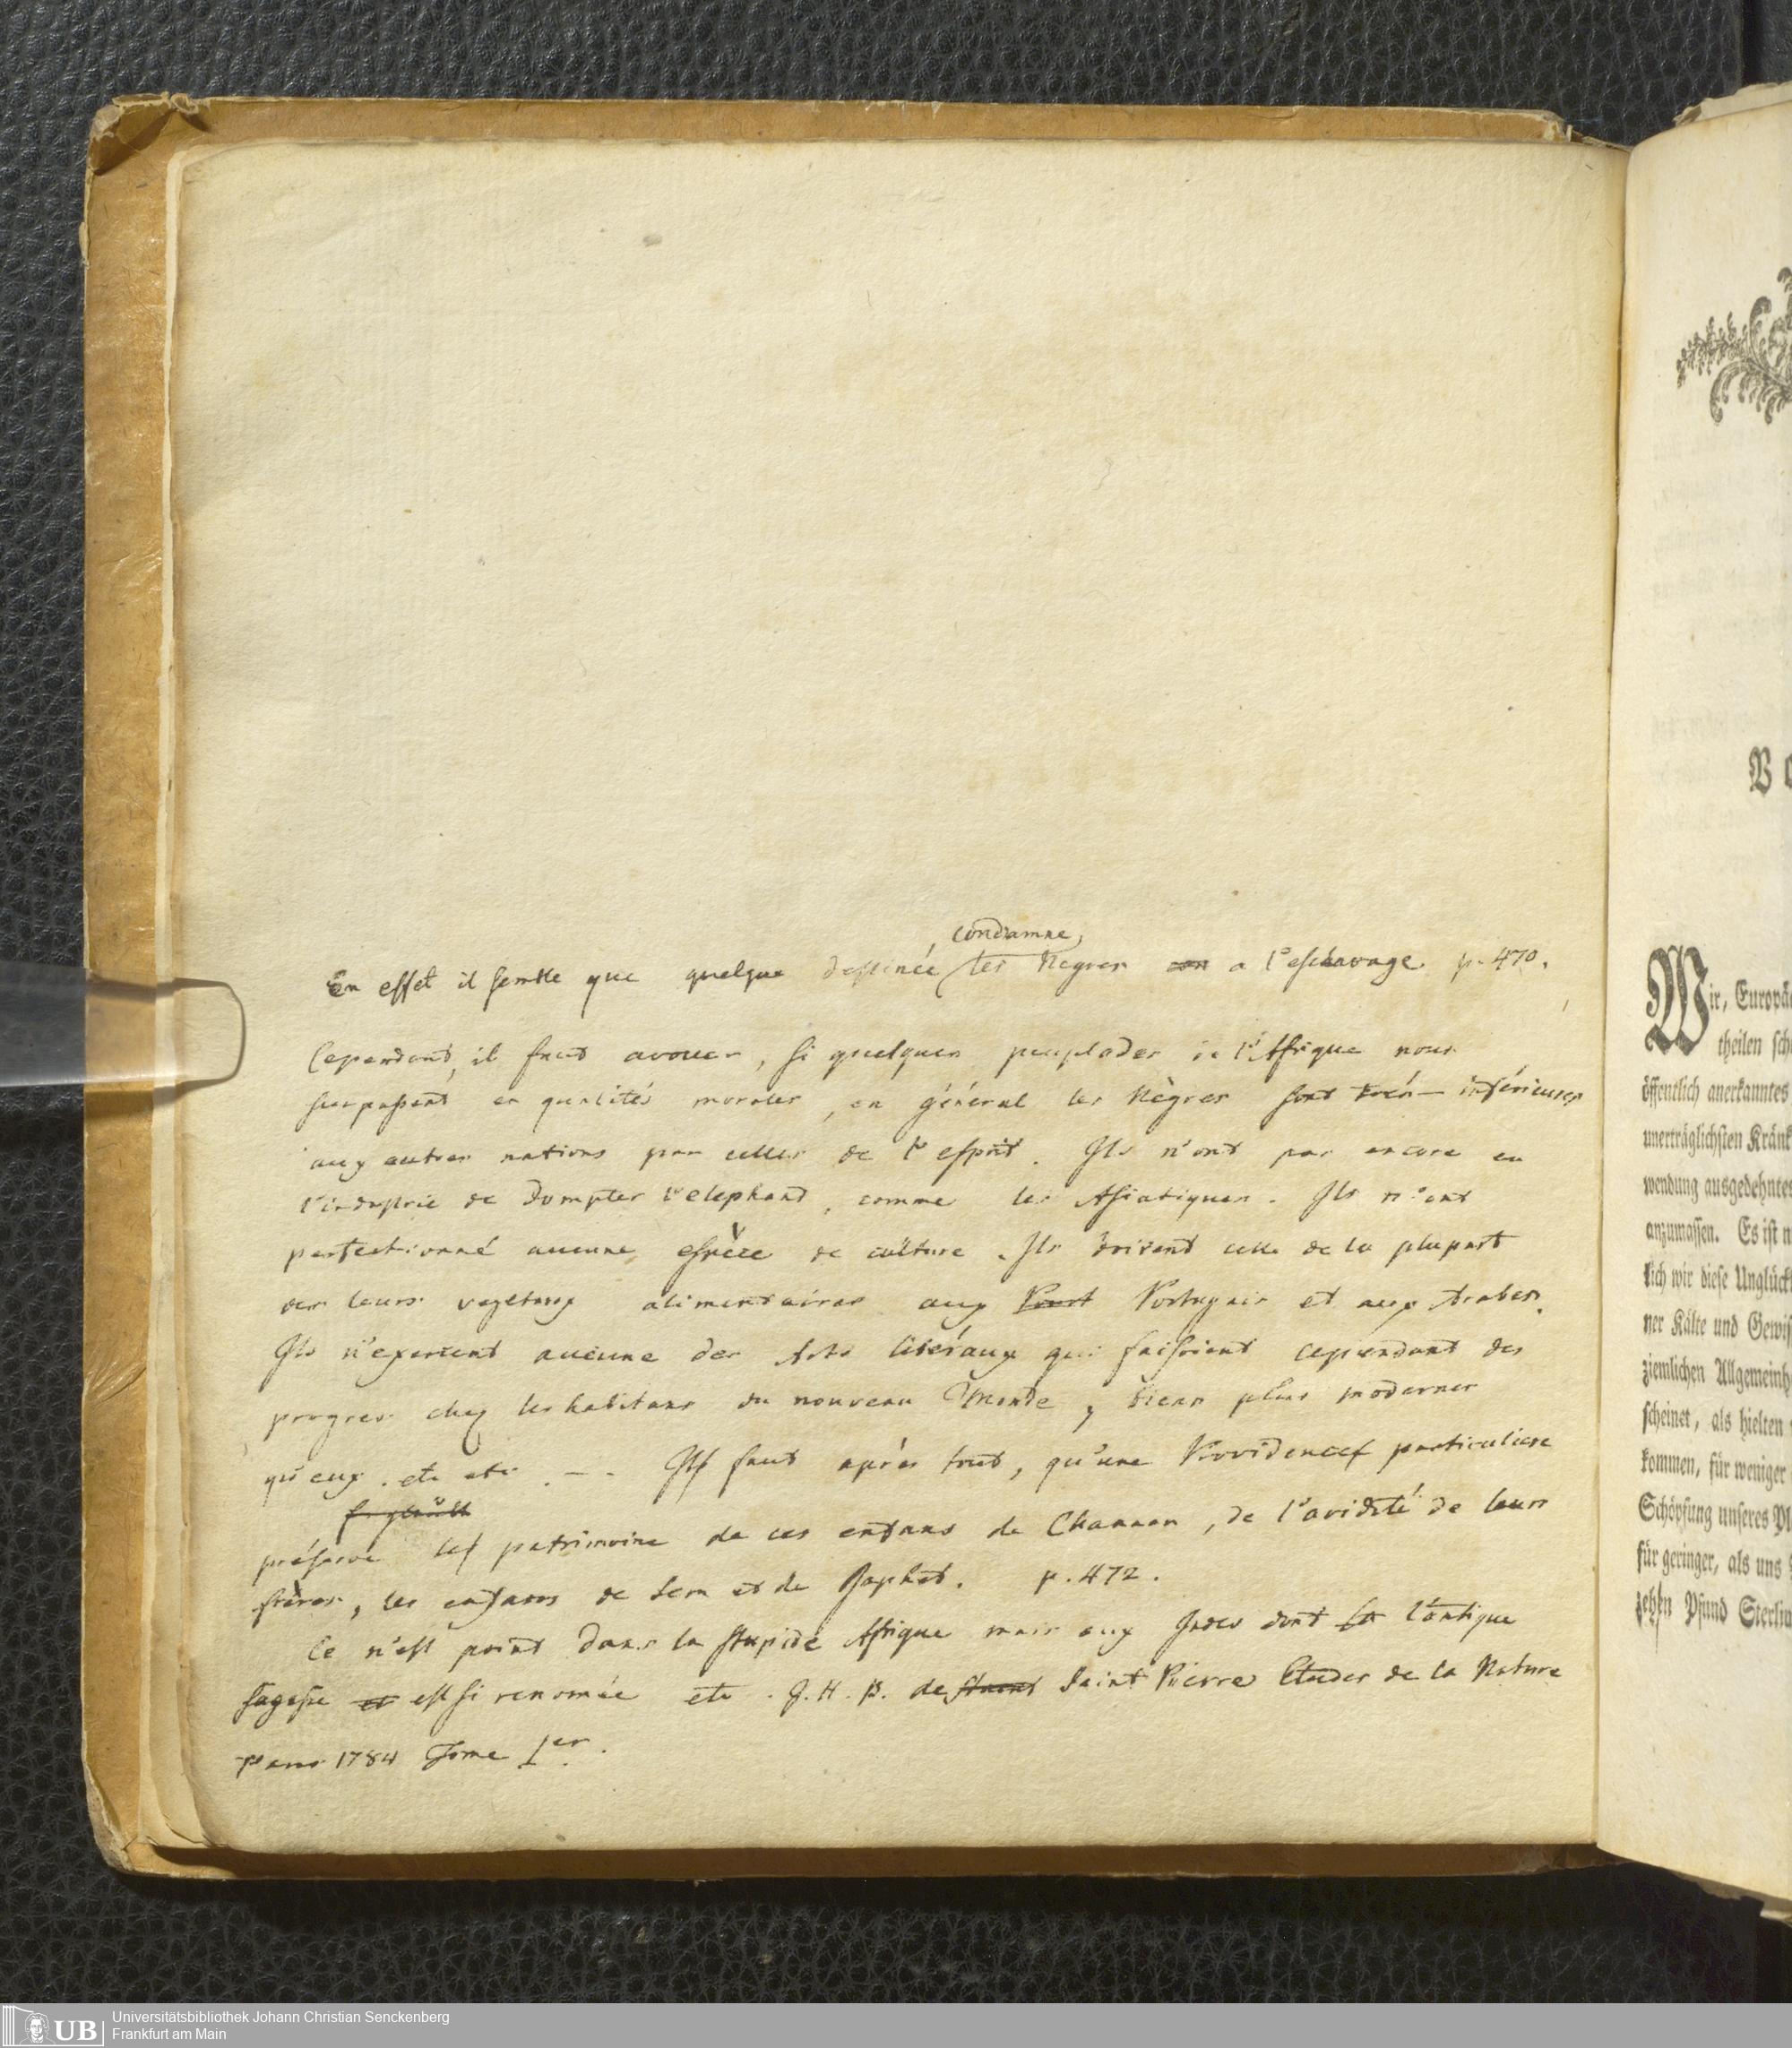 condamne,
En effet il semble que quelque destinée les Negres con a l'esclavage. p. 470.
Cependant, il faut avouer, si quelques peuplades de l'Afrique nous
surpassent en qualités morales, en général les Nègres sont très- inférieures
aux autres nations par celles de l'esprit. Ils n'ont pas encore eu
l'industrie de dompter l'elephant, comme les Asiatiques. Ils n'ont
perfectionné aucune espèce de culture. Ils doivent celle de la plupart
des leurs vegetaux alimentaires aux Port Portugais et aux Arabes.
Ils n'exercent aucune des Arts libéraux qui faisoient cependant des
progres chez les habitans du nouveau Monde, bien plus modernes
qu'eux. etc etc. — . Il faut après tout, qu'une Providence particuliere
préserve le patrimoine de ces enfans de Chanaan, de l'avidité de leurs
frères, les enfans de Sem et de Japhet. p. 472.
Ce n'est point dans la stupide Afrique mais aux Indes dont la l'antique
sagesse et est si renomée etc. J. H. B. de Saint Pierre Etudes de la Nature
Paris 1784 Tome I er.
V
Wir, Europä
theilen sch
öffentlich anerkanntes
unerträglichsten Kränk
wendung ausgedehntes
anzumassen. Es ist n
lich wir diese Unglück
ner Kälte und Gewis
ziemlichen Allgemeinh
scheinet, als hielten
kommen, für weniger
Schöpfung unseres Pl
für geringer, als uns
zehn Pfund Sterlin
UB
Universitätsbibliothek Johann Christian Senckenberg
Frankfurt am Main